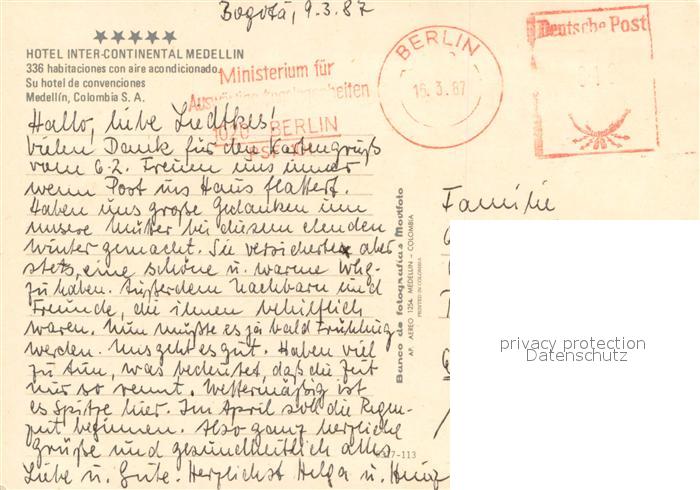 Bogotá, 9.3.87
★★★★★
HOTEL INTER-CONTINENTAL MEDELLIN
336 habitaciones con aire acondicionado
Su hotel de convenciones
Medellín, Colombia S. A.
Ministerium für
Auswärtige Angelegenheiten
1020 BERLIN
BERLIN
16.3.87
Deutsche Post
Hallo, liebe Liedtkes!
Vielen Dank für den Kartengruß
vom 6.2. Freuen uns immer
wenn Post ins Haus flattert.
Haben uns große Gedanken um
unsere Mütter bei diesem elenden
Winter gemacht. Sie versicherten aber
stets, eine schöne u. warme Whg.
zu haben. Außerdem Nachbarn und
Freunde, die ihnen behilflich
waren. Nun müßte es ja bald Frühling
werden. Uns geht es gut. Haben viel
zu tun, was bedeutet, daß die Zeit
nur so rennt. Wettermäßig ist
es Spitze hier. Im April soll die Regen-
zeit beginnen. Also ganz herzliche
Grüße und gesundheitlich alles
Liebe u. Gute. Herzlichst Helga u. Heinz
Banco de fotografías Movifoto
AP. AEREO 1254 MEDELLIN - COLOMBIA
PRINTED IN COLOMBIA
-113
Familie
privacy protection
Datenschutz